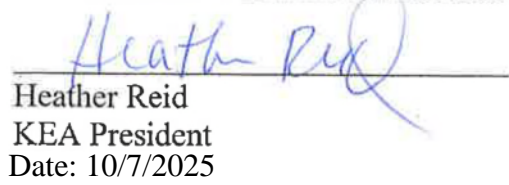 Heather Reid
Heather Reid
KEA President
Date: 10/7/2025